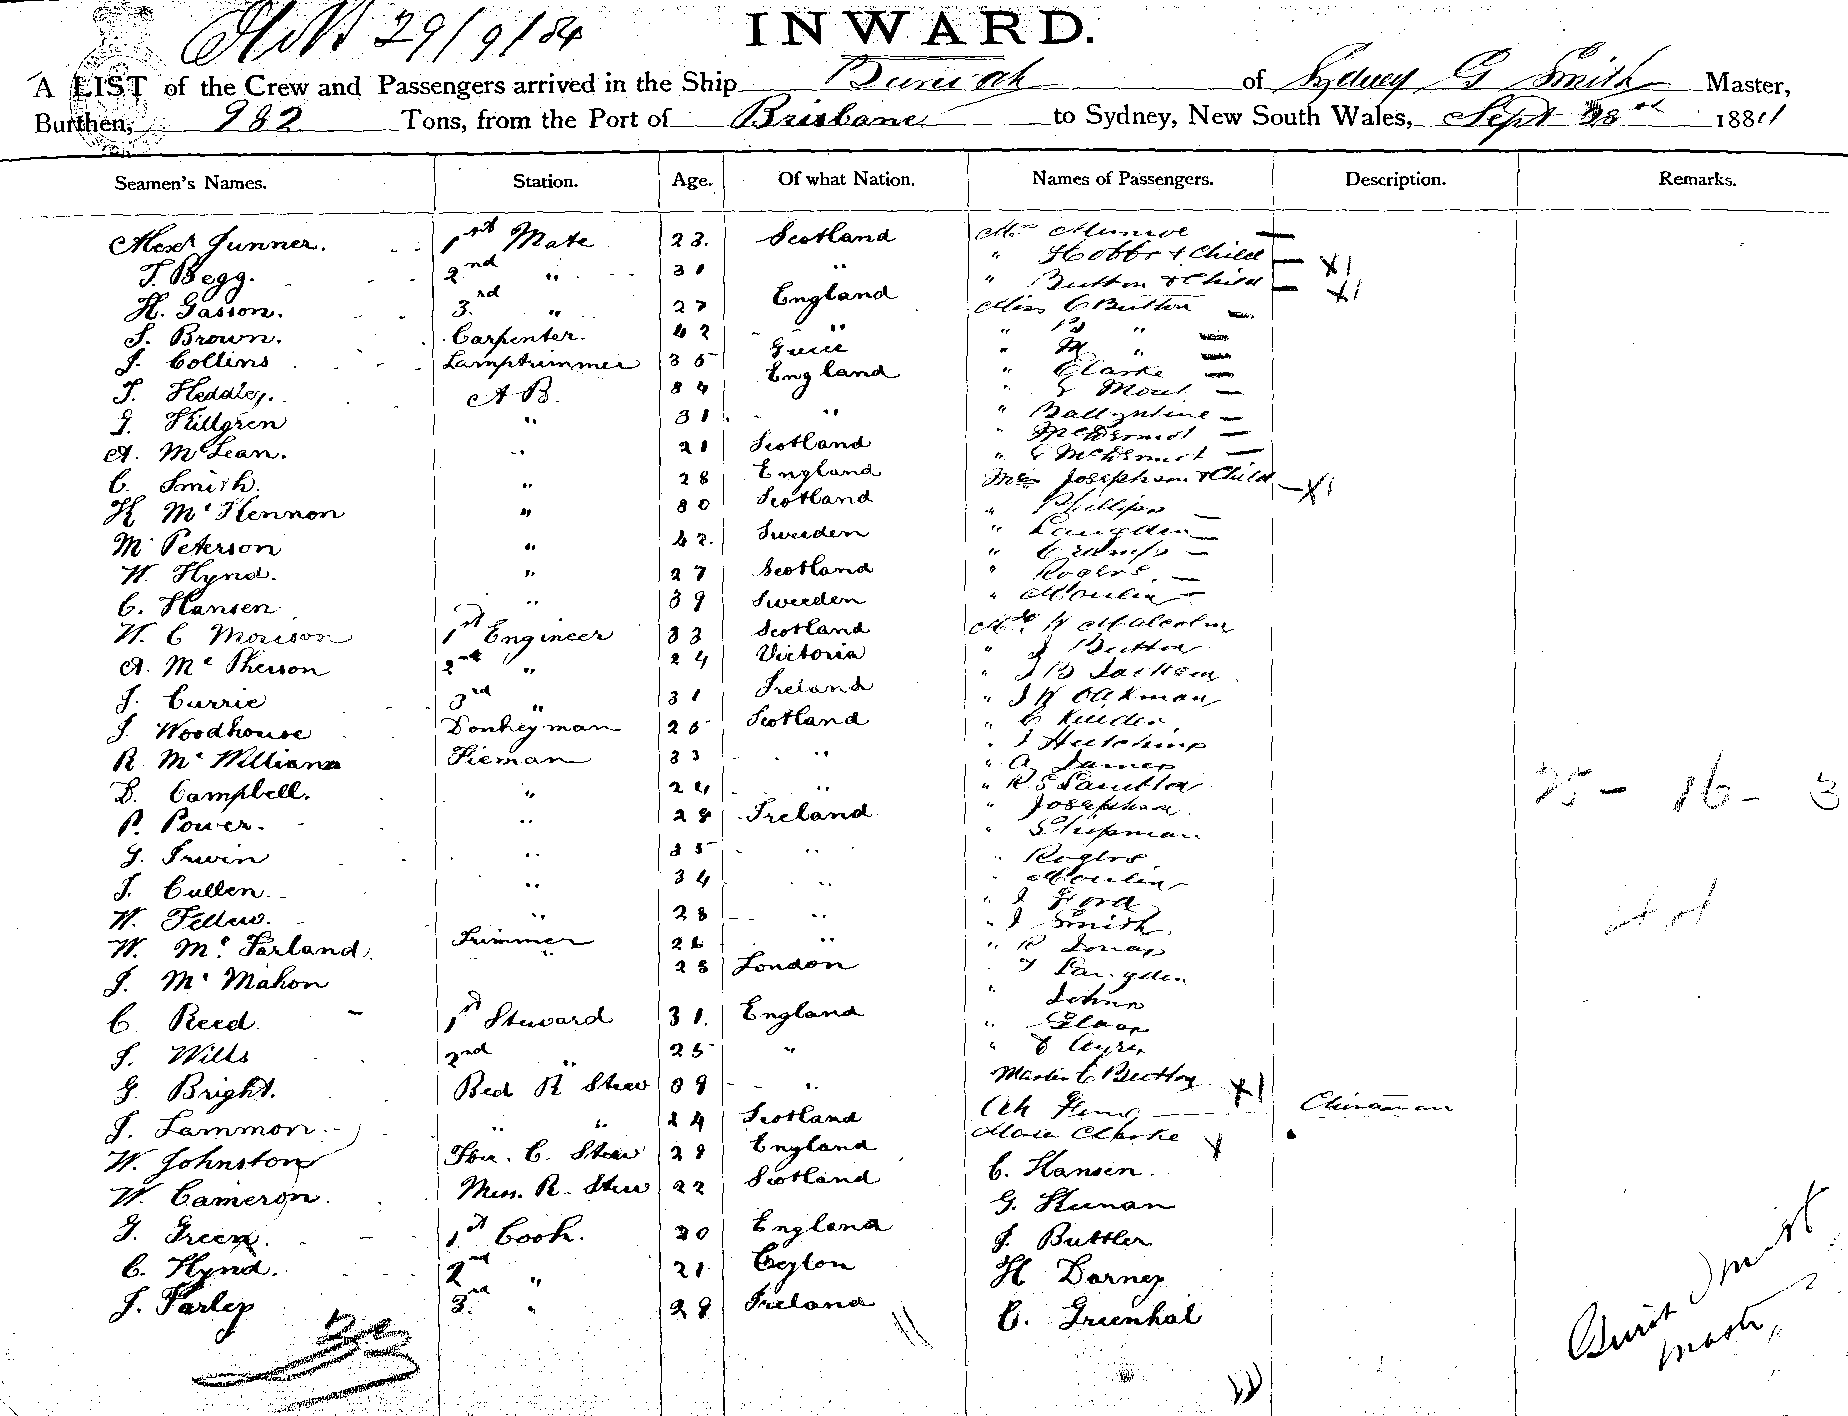 29/9/84
INWARD.
A LIST of the Crew and Passengers arrived in the Ship Buninyong of Sydney G Smith Master,
Burthen, 982 Tons, from the Port of Brisbane to Sydney, New South Wales, Sept 28th 1884
Seamen's Names. Station. Age. Of what Nation. Names of Passengers. Description. Remarks.
Alexr Junner. 1st Mate 23. Scotland Mrs Munroe
T. Begg. 2nd " 31 " " Hobbs & Child X1
H. Gasson. 3rd " 27 England " Button & Child X1
S. Brown. Carpenter. 42 " Miss C Button
J. Collins Lamptrimmer 35 " " "
T. Heddley. A B. 34 England " M "
J. Hillgren " 31 " " Clarke
A. McLean. " 21 Scotland " Mout
C. Smith. " 28 England " Ballyntine
H McKennon " 30 Scotland " McDermot
M Peterson " 42 Sweden " McDermot
W. Hynd. " 27 Scotland Mrs Josephson & Child X1
C. Hansen " 39 Sweden " Phillips
W. C Morison 1st Engineer 33 Scotland " Langdon
A. McPherson 2nd " 24 Victoria " Cramp
J. Currie 3rd " 31 Ireland " Rogers
J. Woodhouse Donkeyman 25 Scotland " Moulin
R. McWilliams Fireman 33 " Mr W Malcolm
D. Campbell. " 24 " " J Button
P. Power. " 28 Ireland " J B
G. Irwin " 35 " " J W Oakman
J. Cullen " 34 " " C
W. Fellew. " 28 " " J Hutchins
W. McFarland Trimmer 26 " " A James
J. McMahon " 28 London " R S
C. Reed 1st Steward 31. England " Josephson
J. Wills 2nd " 25 " " Shipman
G Bright. Bed R Stew 39 " " Rogers
J. Lammon. " " 24 Scotland " Moulin
W. Johnston For. C. Stew 28 England " J Ford
W. Cameron. Mess. R. Stew 22 Scotland " J Smith
J. Green. 1st Cook. 30 England " R Jonas
C. Hynd. 2nd " 21 Ceylon " Langdon
J. Farley 3rd " 28 Ireland " Johns
" Sloan
" Ayres
Master C Button X1
Ah Chinaman
Clarke X
C. Hansen.
G. Keenan
J. Buttler
H Darney
C. Greenhal
25 - 16 - 3
Smith
Master